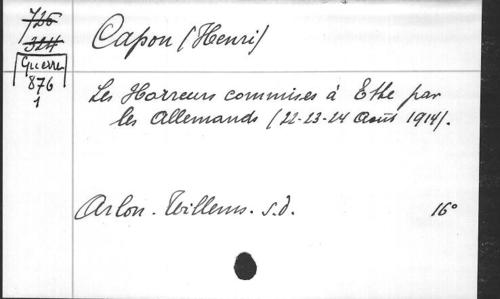 726
324
Guerre
876
1
Capon (Henri)
Les Horreurs commises à Ethe par
les Allemands (22-23-24 Août 1914).
Arlon. Willems. s.d. 16°